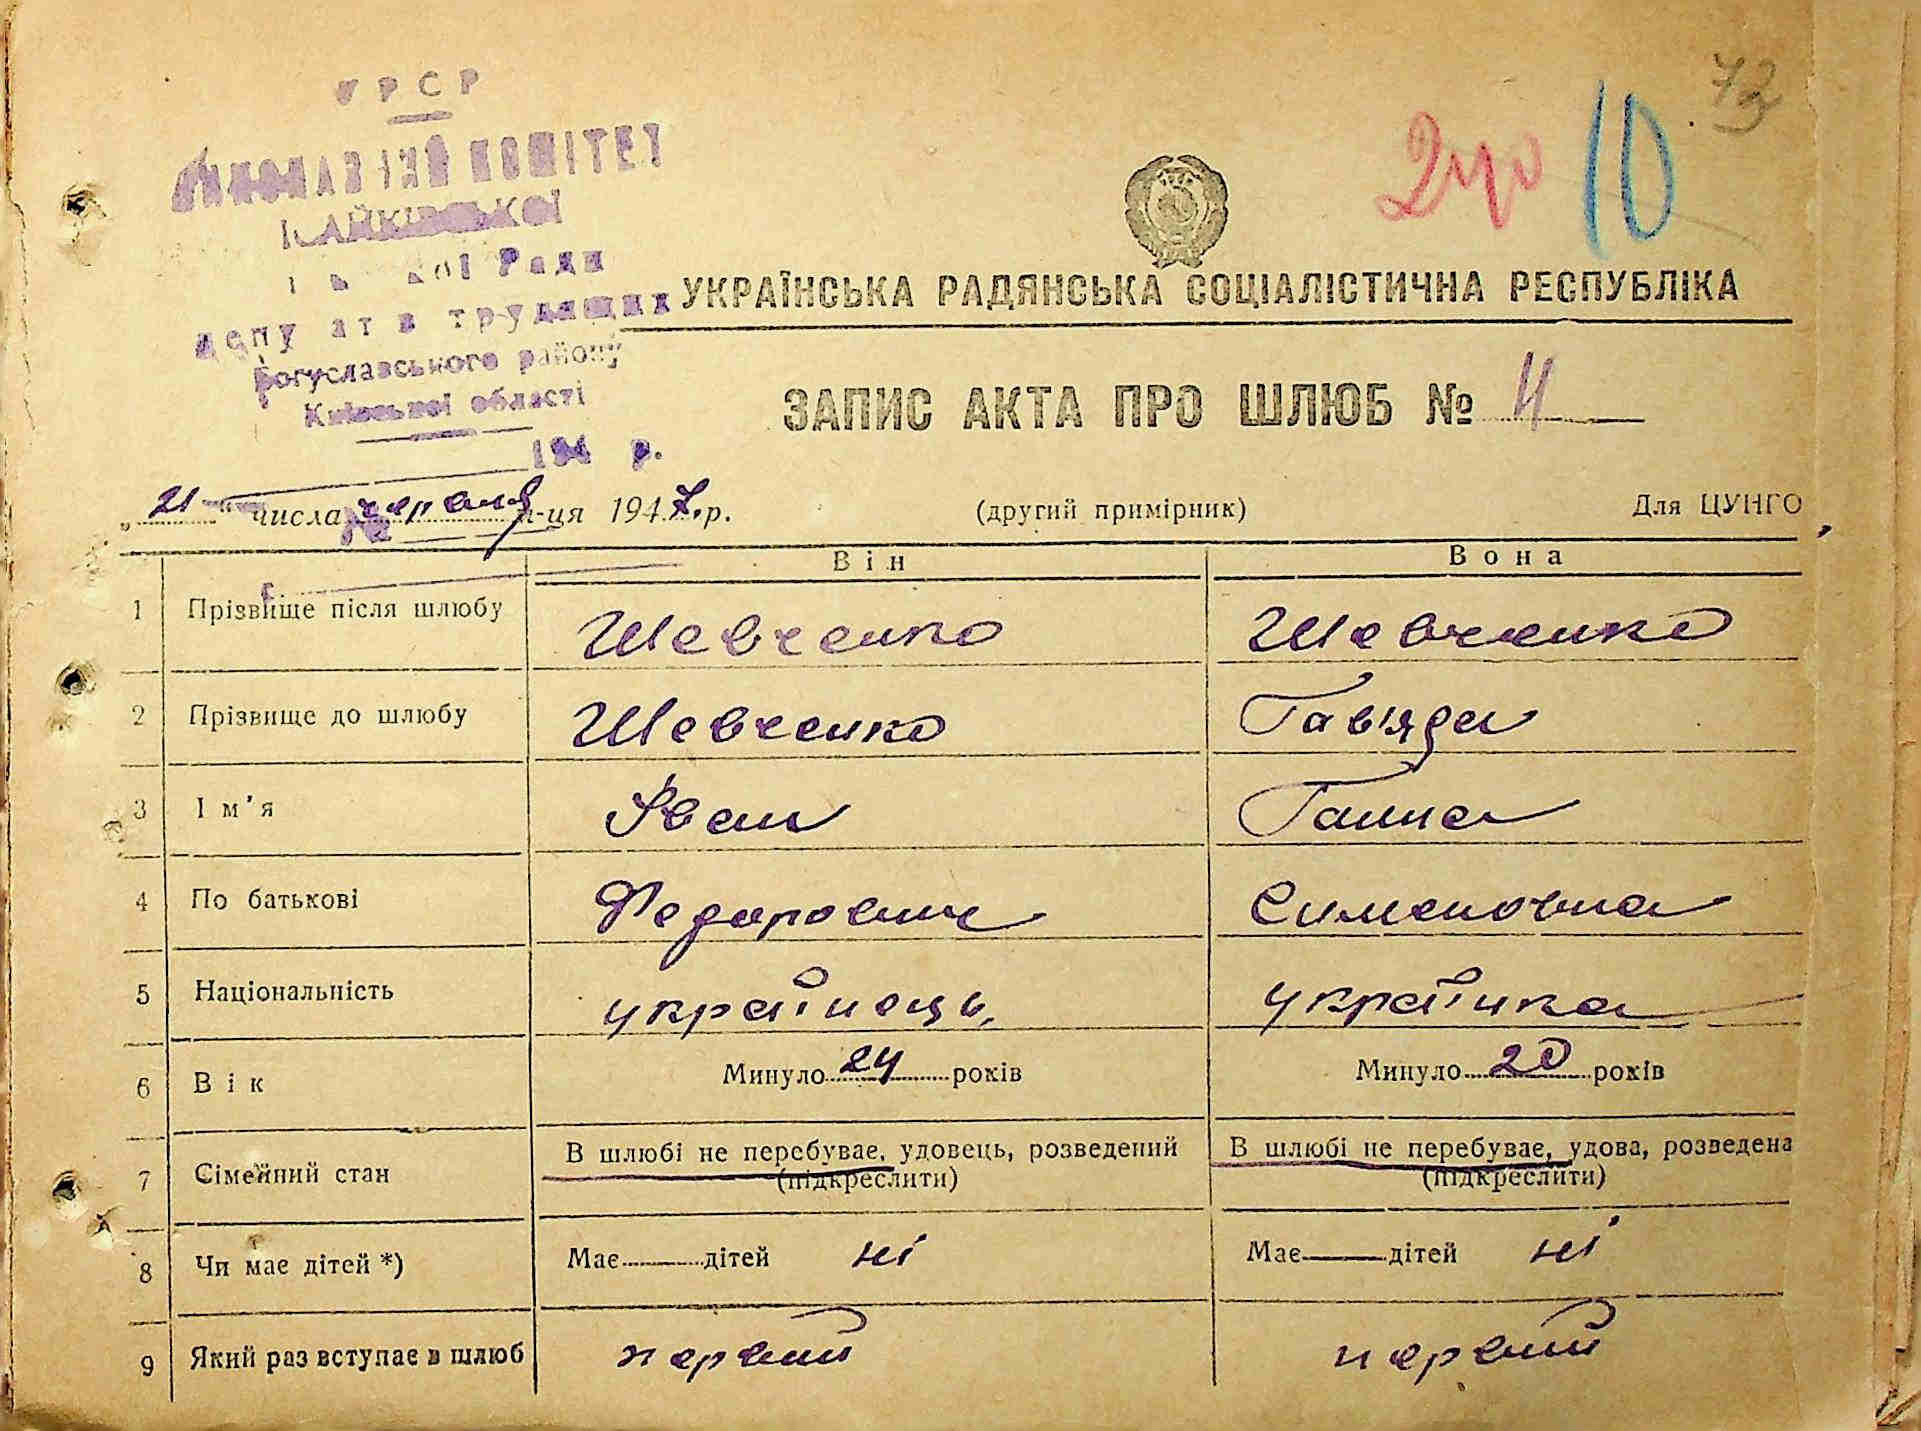 УРСР
ВИКОНАВЧИЙ КОМІТЕТ
ІСАЙКІВСЬКОЇ
Ради
депутатів трудящих
Богуславського району
Київської області
194 р.
2ур 10 73
УКРАЇНСЬКА РАДЯНСЬКА СОЦІАЛІСТИЧНА РЕСПУБЛІКА
ЗАПИС АКТА ПРО ШЛЮБ № 11
„21“ числа червня м-ця 1947 р. (другий примірник) Для ЦУНГО
Він Вона
1 Прізвище після шлюбу Шевченко Шевченко
2 Прізвище до шлюбу Шевченко Гав'яда
3 Ім'я Іван Галина
4 По батькові Федорович Сименовна
5 Національність українець українка
6 Вік Минуло 24 років Минуло 20 років
7 Сімейний стан В шлюбі не перебуває, удовець, розведений В шлюбі не перебуває, удова, розведена
(підкреслити) (підкреслити)
8 Чи має дітей *) Має дітей ні Має дітей ні
9 Який раз вступає в шлюб первий первий